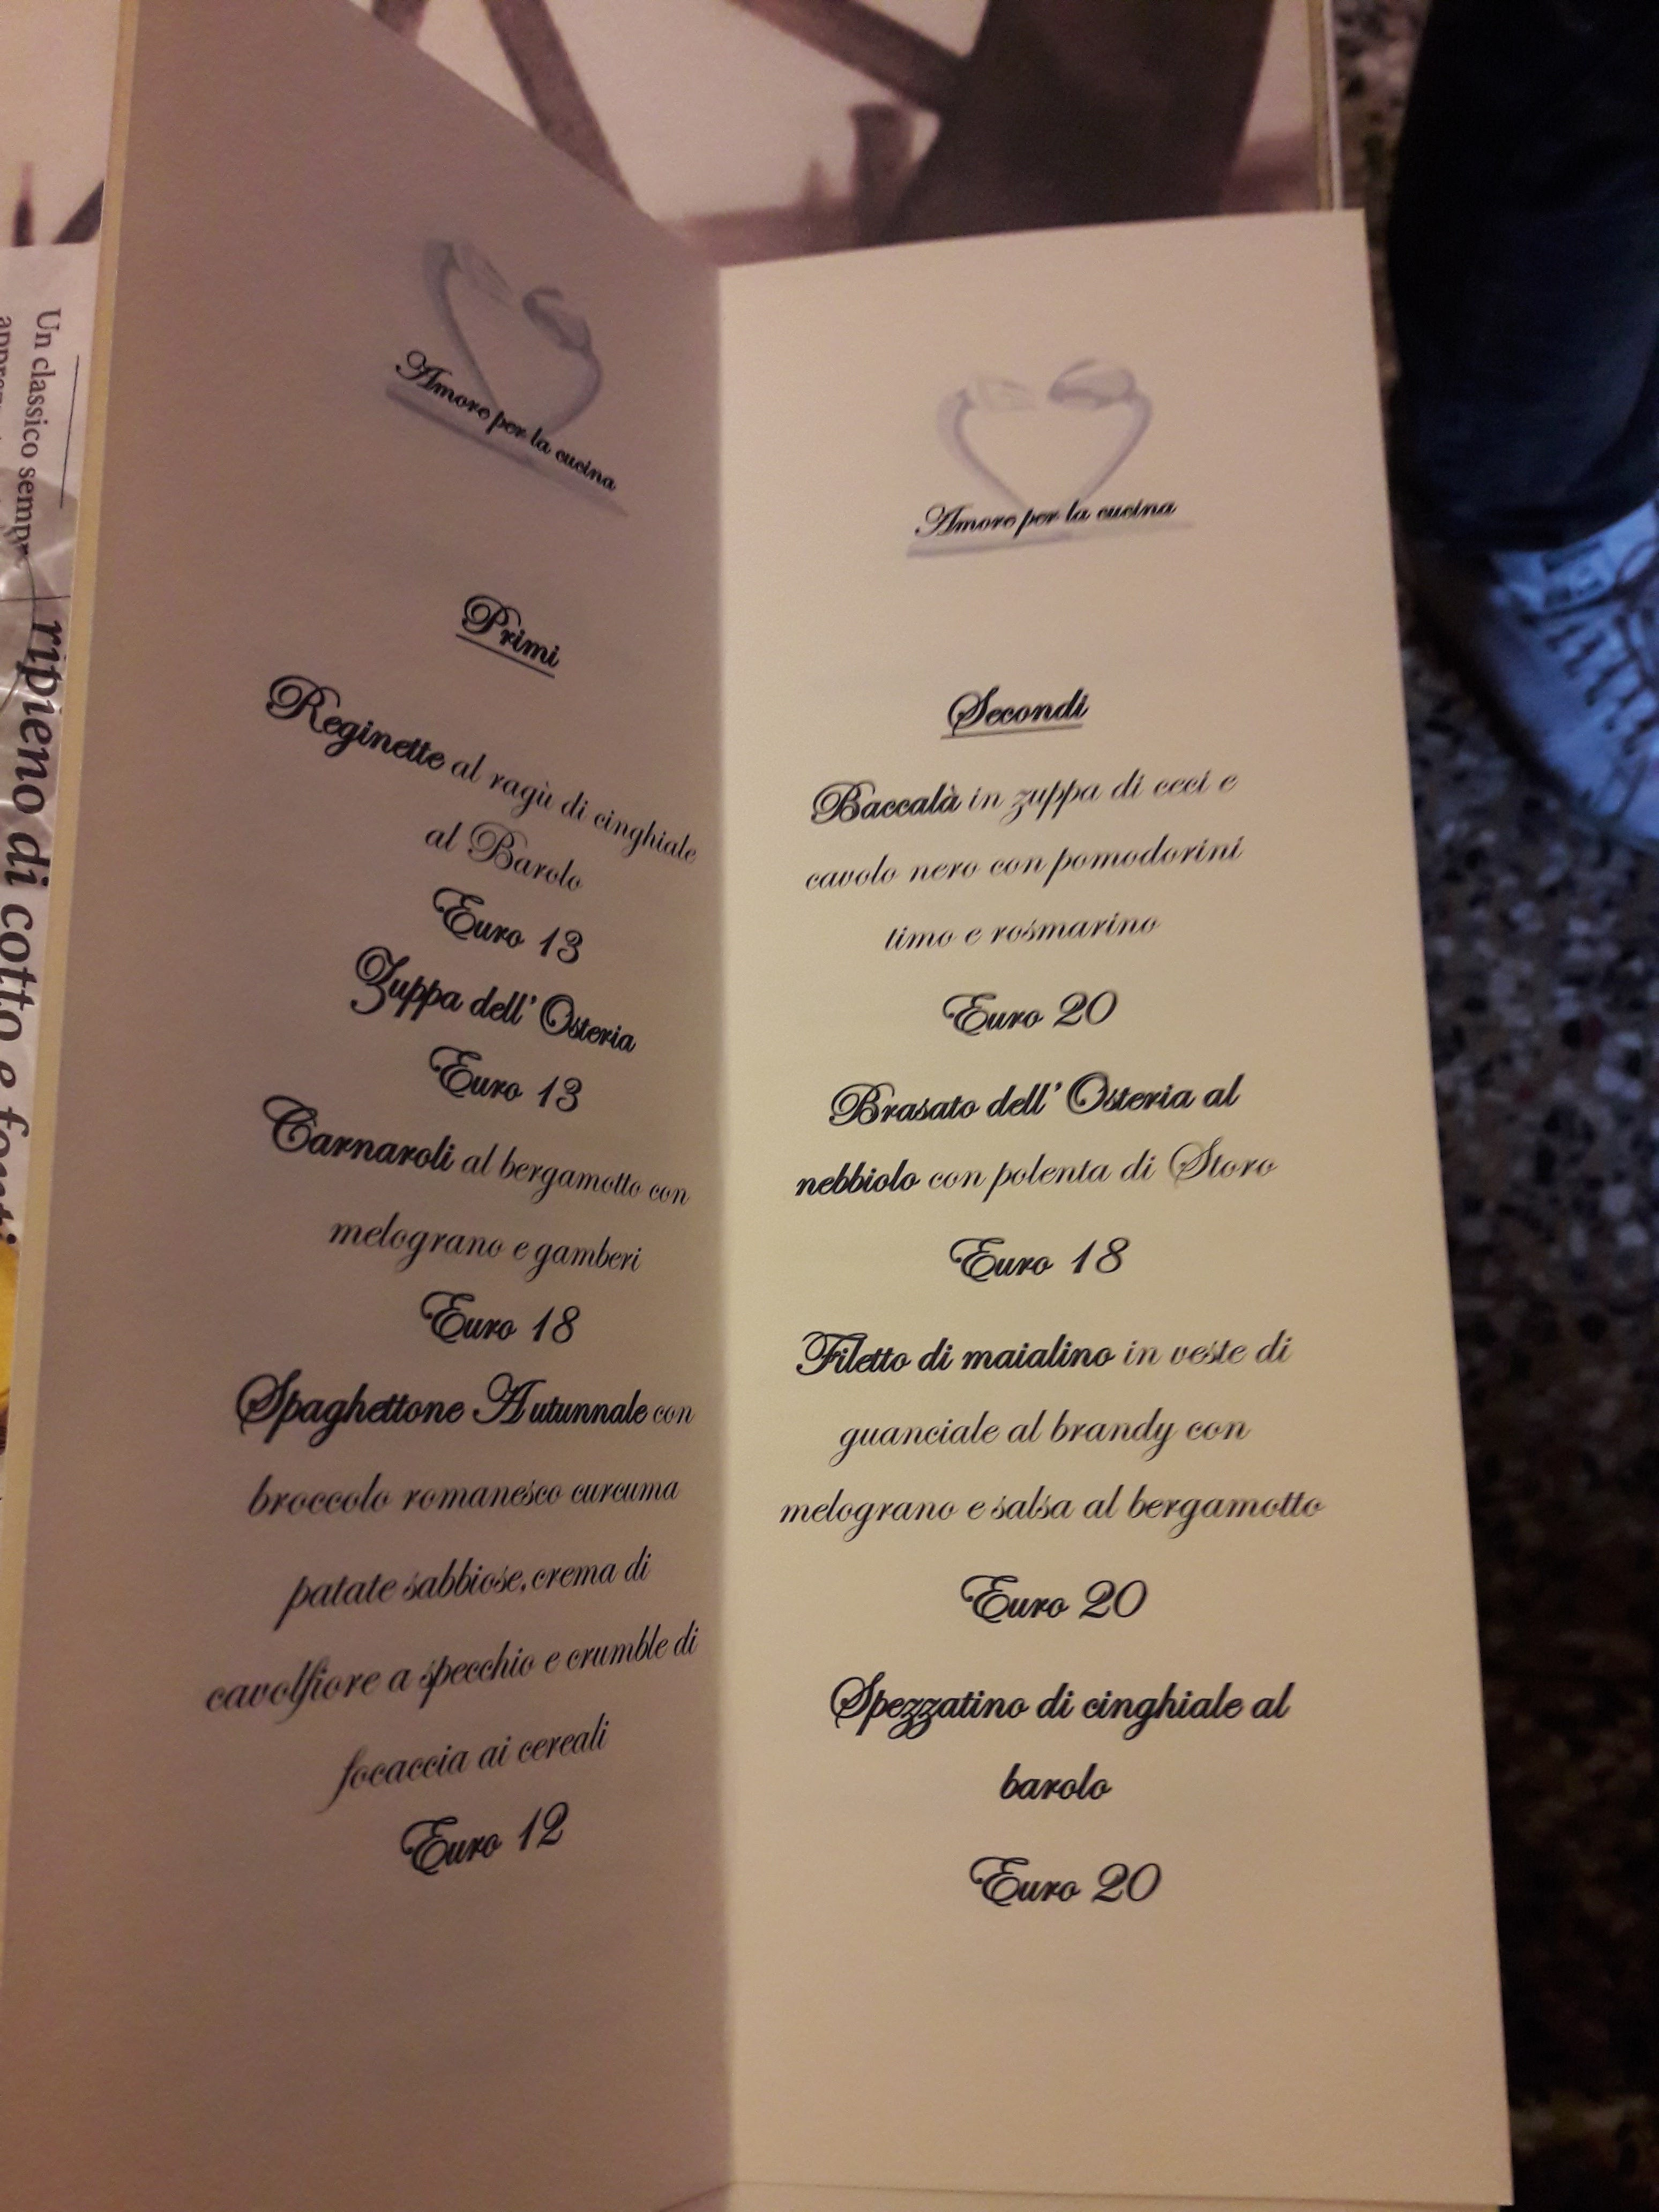 Un classico sempr
ripieno di cotto e
Amore per la cucina
Primi
Reginette al ragù di cinghiale
al Barolo
Euro 13
Zuppa dell' Osteria
Euro 13
Carnaroli al bergamotto con
melograno e gamberi
Euro 18
Spaghettone Autunnale con
broccolo romanesco curcuma
patate sabbiose,crema di
cavolfiore a specchio e crumble di
focaccia ai cereali
Euro 12
Amore per la cucina
Secondi
Baccalà in zuppa di ceci e
cavolo nero con pomodorini
timo e rosmarino
Euro 20
Brasato dell' Osteria al
nebbiolo con polenta di Storo
Euro 18
Filetto di maialino in veste di
guanciale al brandy con
melograno e salsa al bergamotto
Euro 20
Spezzatino di cinghiale al
barolo
Euro 20